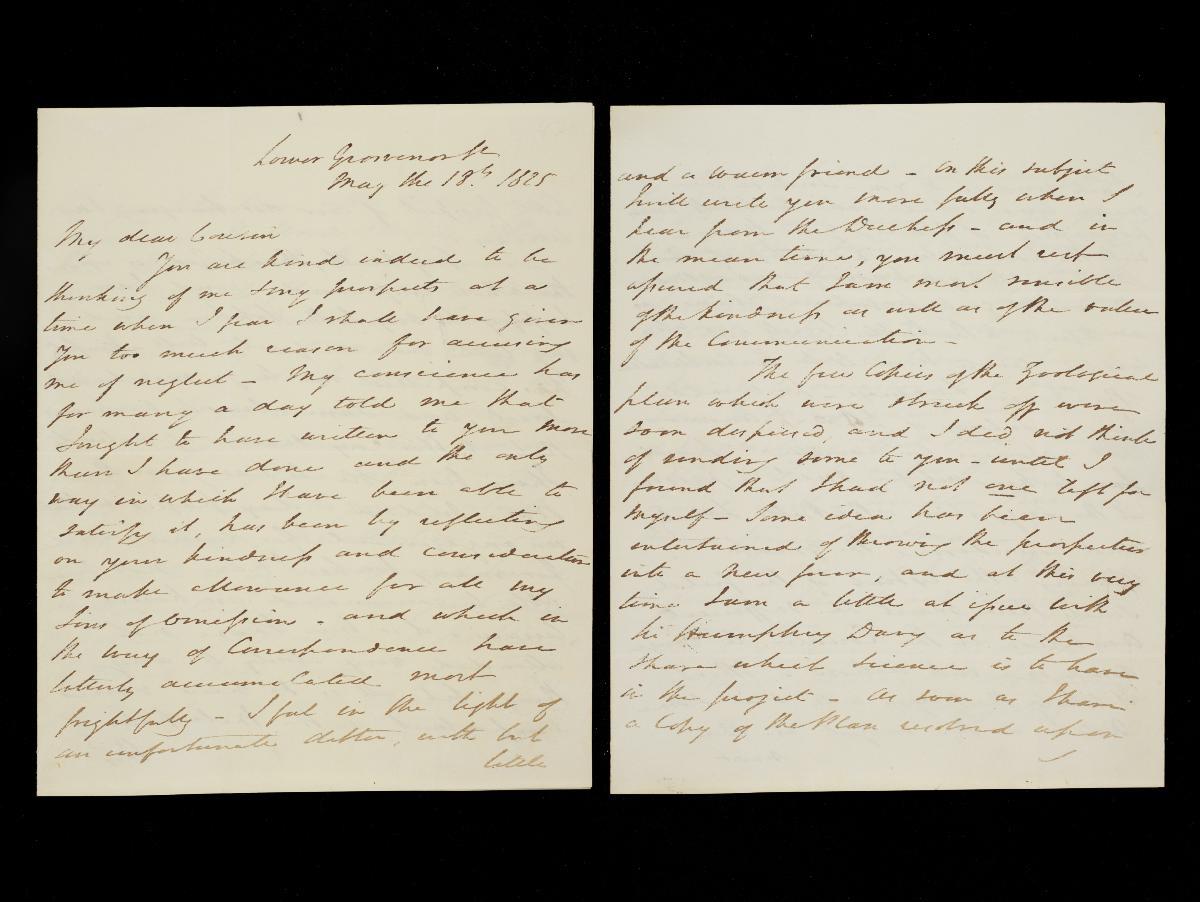 Lower Grosvenor St
May the 18th. 1825
My dear Cousin
You are kind indeed to be
thinking of me & my prospects at a
time when I fear I shall have given
You too much reason for accusing
me of neglect - My conscience has
for many a day told me that
I ought to have written to you more
than I have done and the only
way in which I have been able to
satisfy it, has been by reflecting
on your kindness and consideration
to make allowance for all my
Sins of Omission - and which in
the way of Correspondence have
latterly accumulated most
frightfully - I feel in the light of
an unfortunate debtor, with but
little
and a warm friend - on this subject
I will write you more fully when I
hear from the Duchess - and in
the mean time, you must rest
assured that I am most sensible
of the kindness as well as of the value
of the Communication -
The few Copies of the Zoological
plan which were struck off were
soon dispersed and I did not think
of sending some to you - until I
found that I had not one left for
Myself - Some idea has been
entertained of throwing the prospectus
into a new form, and at this very
time I am a little at issue with
Sir Humphrey Davy as to the
share which science is to have
in the project - As soon as I have
a Copy of the Plan resolved upon